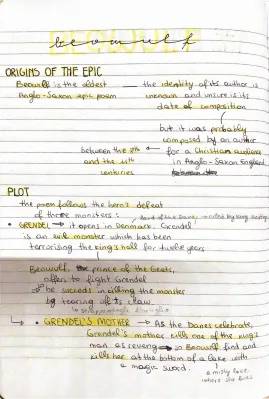 beowulf
ORIGINS OF THE EPIC
Beowulf is the oldest — the identity of its author is
Anglo-Saxon epic poem unknown and unsure is its
date of composition
but it was probably
composed by an author
between the 8th for a Christian audience
and the 11th in Anglo-Saxon England
centuries
PLOT
the poem follows the hero's defeat
of three monsters: land of the Danes, ruled by king
• GRENDEL → it opens in Denmark. Grendel
is an evil monster which has been
terrorising the king's hall for twelve years
Beowulf, the prince of the Geats,
offers to fight Grendel
he succeeds in killing the monster
by tearing off its claw
• GRENDEL'S MOTHER → As the Danes celebrate,
Grendel's mother kills one of the king's
man as revenge → so Beowulf find and
kills her at the bottom of a lake with
a magic sword. a misty lake
where she lives